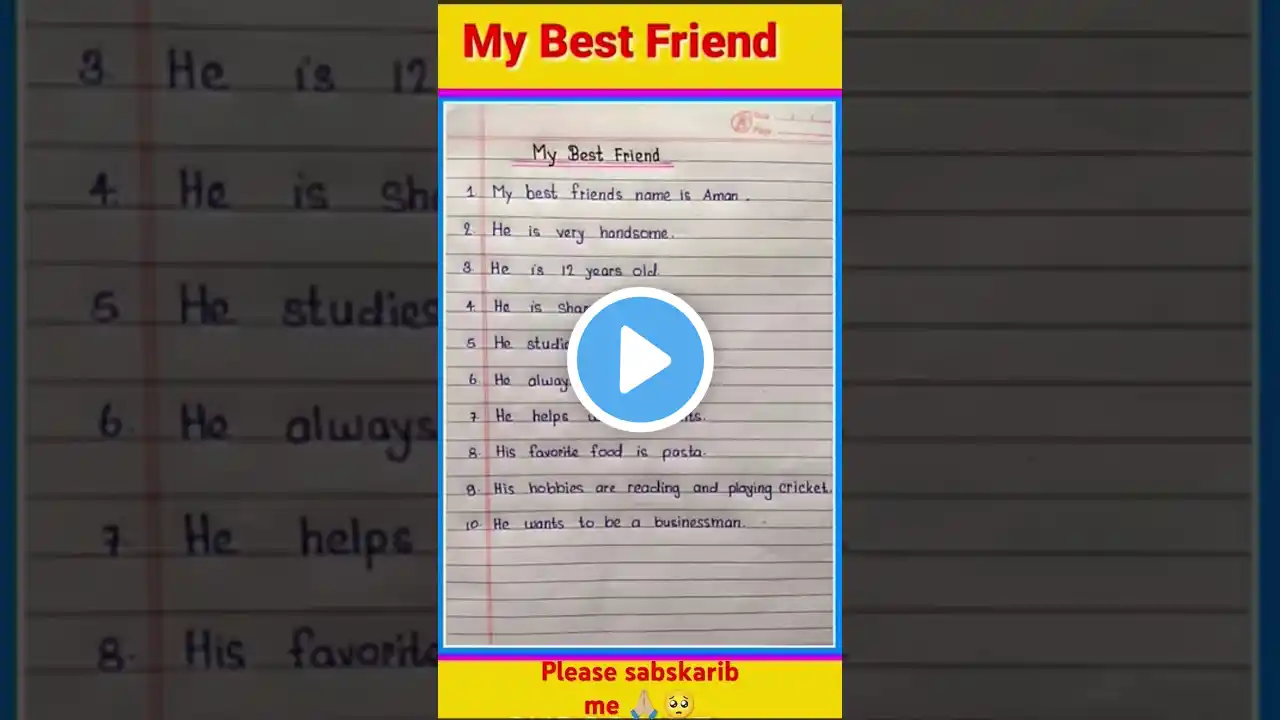 My Best Friend
3. He is 12
4. He is sh
5 He studies
6. He always
7 He helps
8. His favorite
Date
Page
My Best Friend
1 My best friends name is Aman.
2. He is very handsome.
3 He is 12 years old.
4. He is
5 He
6. He
7. He helps
8. His favorite food is pasta.
9. His hobbies are reading and playing cricket.
10. He wants to be a businessman.
Please sabskarib
me 🙏🏼🥺